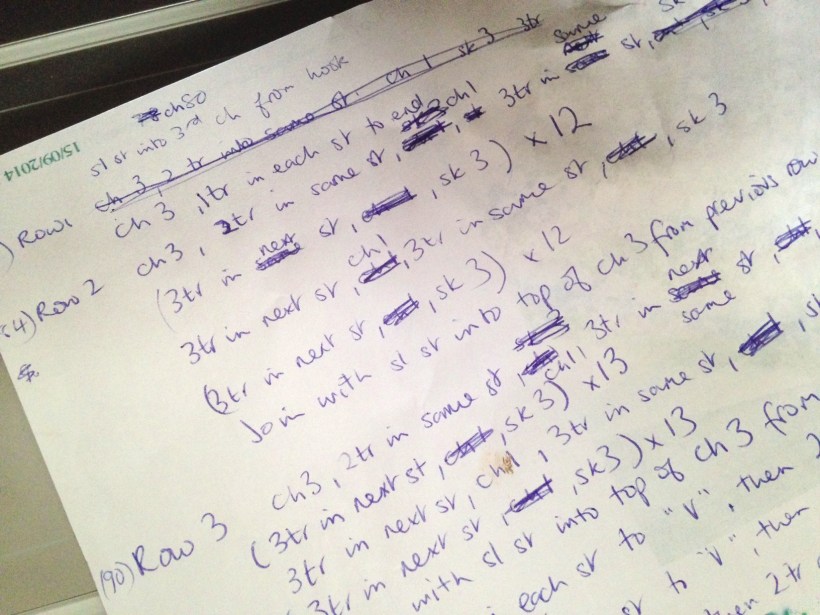 15/09/2014
ch50
sl st into 3rd ch from hook
ch 3, 2 tr into same st, ch 1 sk 3 3tr
Row1 ch 3, 1tr in each st to end
Row 2 ch3, 2tr in same st, ch1, 3tr in same st, sk
(3tr in next st, sk 3) x 12
3tr in next st, ch1, 3tr in same st, sk 3
(3tr in next st, sk 3) x 12
Join with sl st into top of ch 3 from previous row
(90) Row 3 ch3, 2tr in same st, ch1, 3tr in same st,
(3tr in next st, sk3) x13
3tr in next st, ch1, 3tr in same st, sk
3tr in next st, sk3) x13
with sl st into top of ch 3 from
each st to "V", then 2
st to "V", then
then 2tr